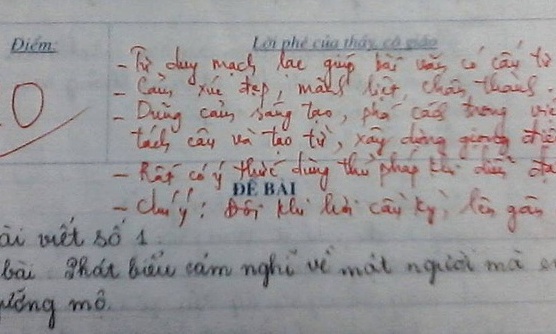 Điểm: Lời phê của thầy, cô giáo
- Tư duy mạch lạc giúp bài văn có cấu tứ
- Cảm xúc đẹp, mãnh liệt, chân thành.
0
- Dũng cảm sáng tạo, phá cách trong việ
tách câu và tạo từ, xây dựng giọng điệ
- Rất có ý thức dùng thủ pháp khi diễn đạ
ĐỀ BÀI
- Chú ý: Đôi khi hơi cầu kỳ, lên gân
ài viết số 1.
bài. Phát biểu cảm nghĩ về một người mà e
ưỡng mộ.